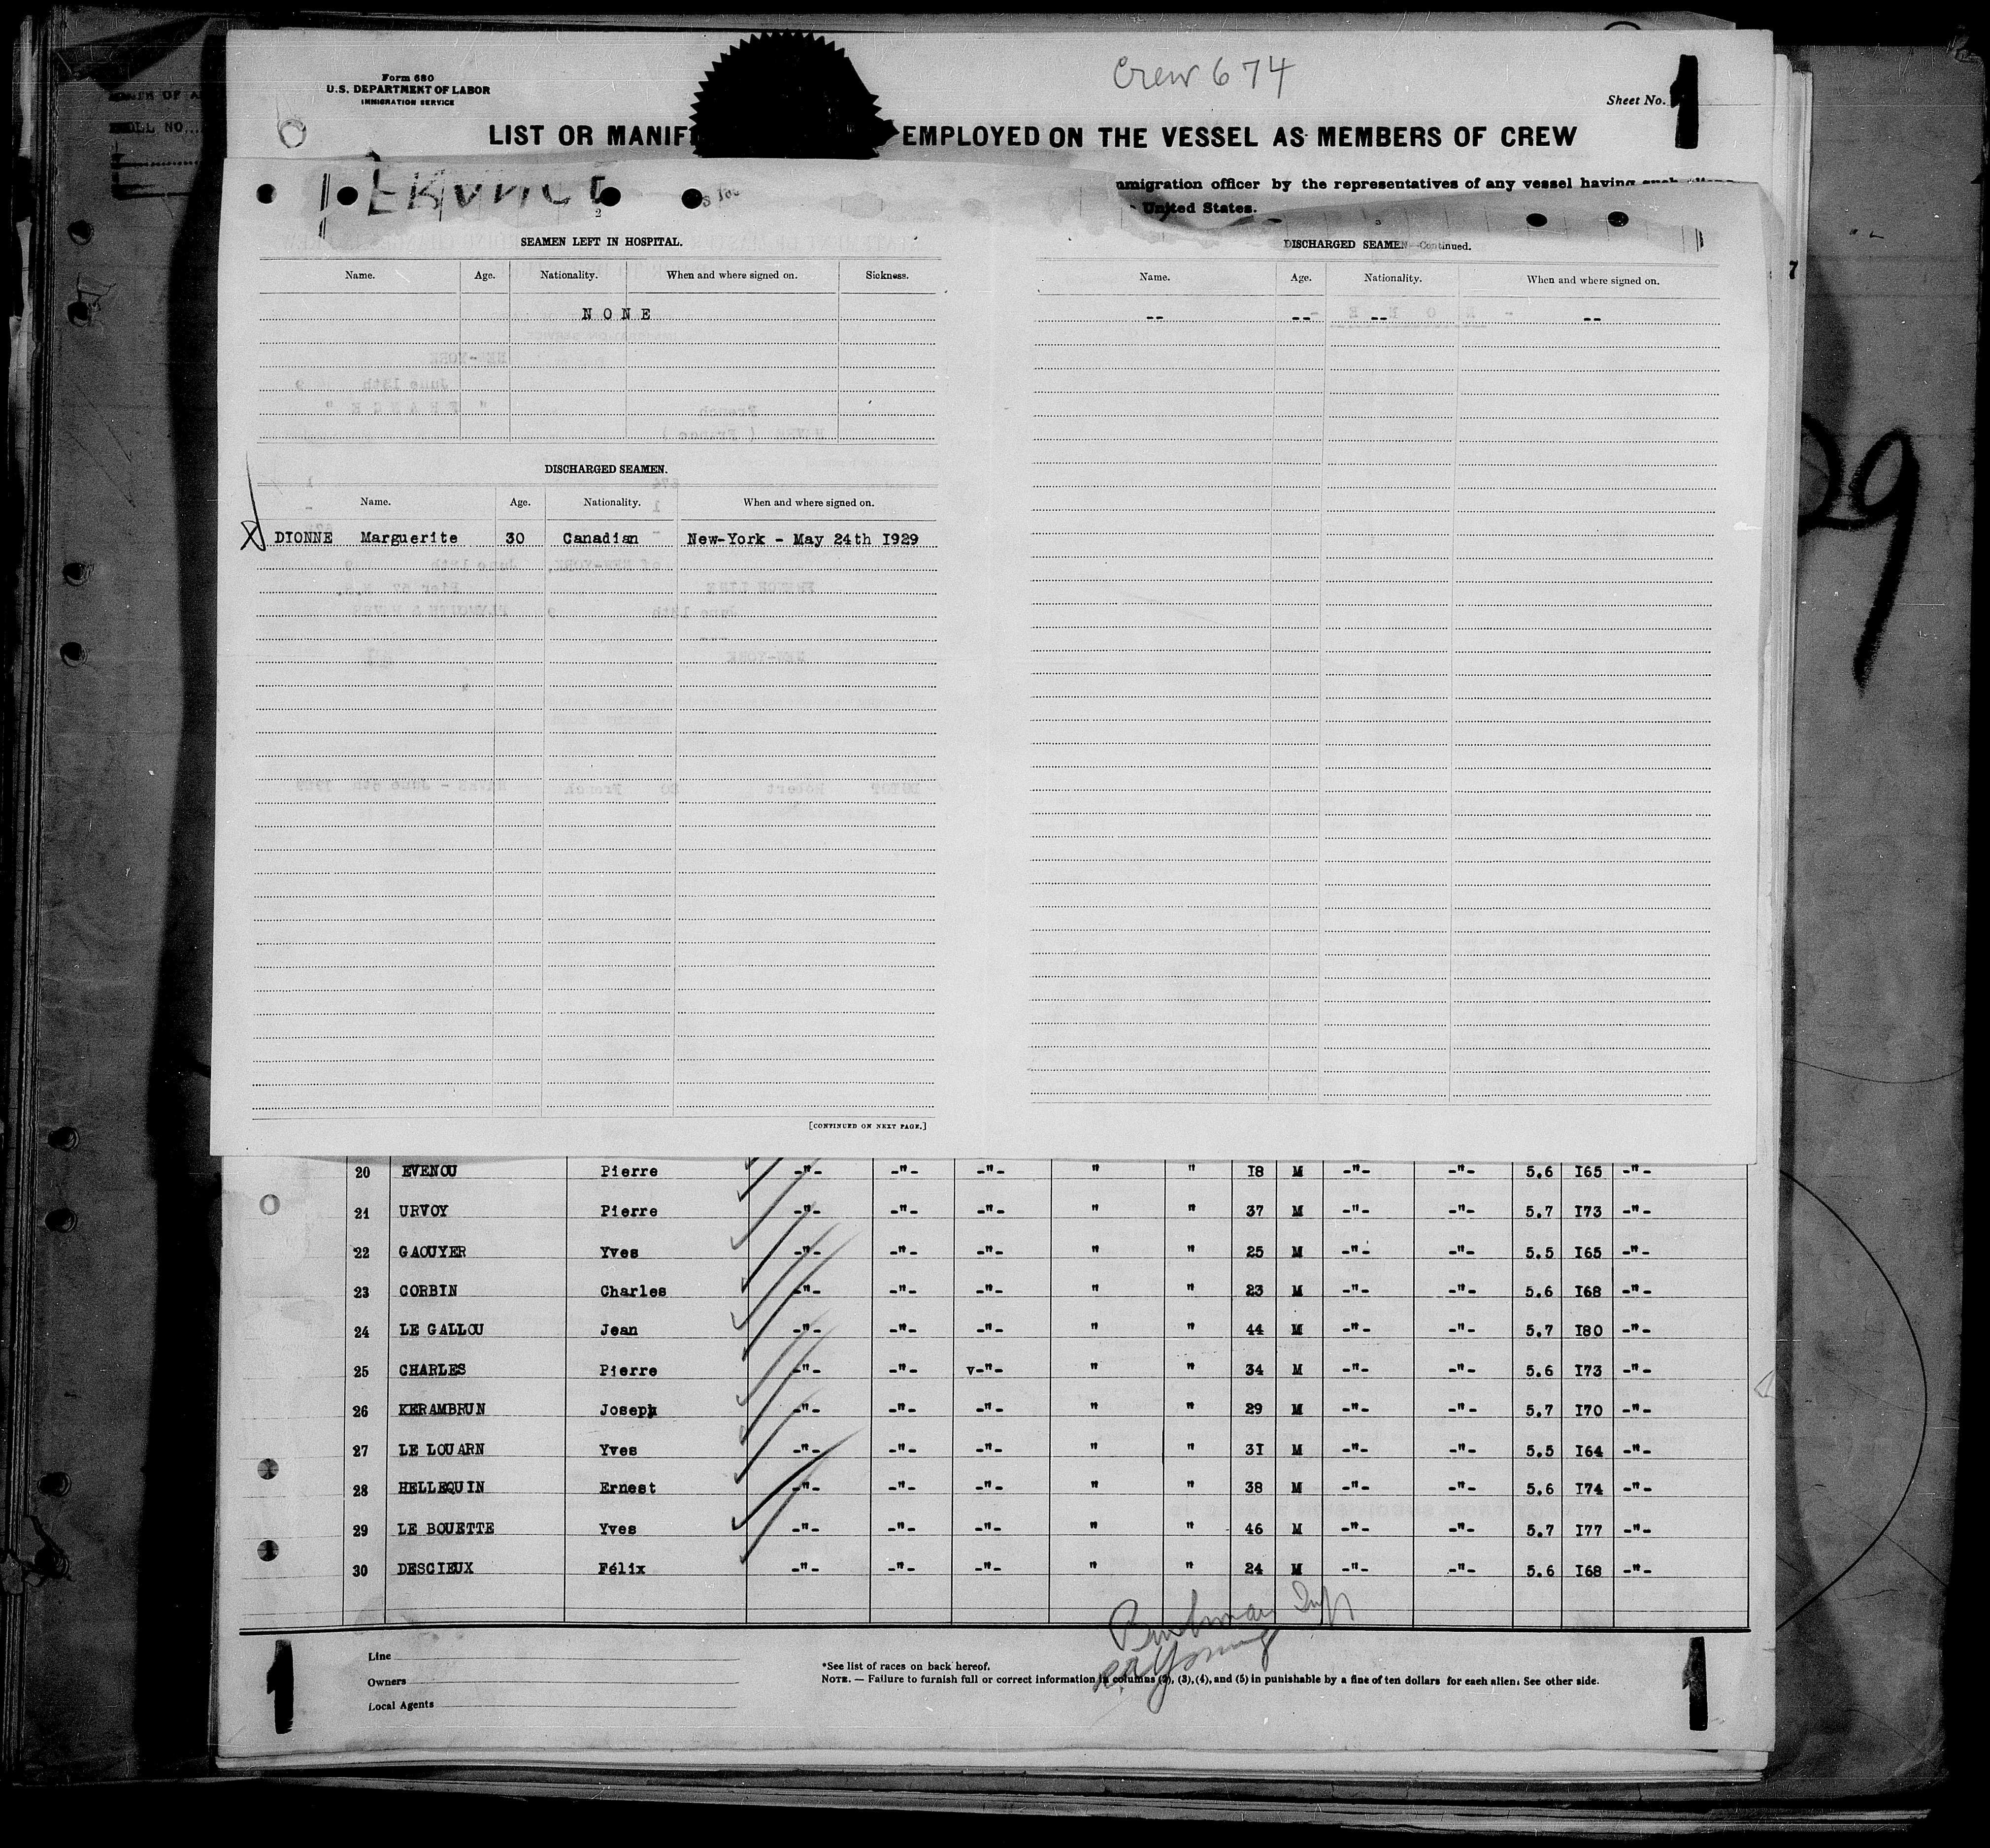 Form 680
U.S. DEPARTMENT OF LABOR
IMMIGRATION SERVICE
6
Crew 674
Sheet No. 1
LIST OR MANIF EMPLOYED ON THE VESSEL AS MEMBERS OF CREW
immigration officer by the representatives of any vessel having such
United States.
France
2
SEAMEN LEFT IN HOSPITAL.
Name. Age. Nationality. When and where signed on. Sickness.
N O N E
DISCHARGED SEAMEN.
Name. Age. Nationality. When and where signed on.
X DIONNE Marguerite 30 Canadian New-York - May 24th I929
[CONTINUED ON NEXT PAGE.]
DISCHARGED SEAMEN—Continued.
Name. Age. Nationality. When and where signed on.
-- -- -- --
20 EVENOU Pierre -"- -"- -"- " " I8 M -"- -"- 5.6 I65 -"-
21 URVOY Pierre -"- -"- -"- " " 37 M -"- -"- 5.7 I73 -"-
22 GAOUYER Yves -"- -"- -"- " " 25 M -"- -"- 5.5 I65 -"-
23 CORBIN Charles -"- -"- -"- " " 23 M -"- -"- 5.6 I68 -"-
24 LE GALLOU Jean -"- -"- -"- " " 44 M -"- -"- 5.7 I80 -"-
25 CHARLES Pierre -"- -"- v-"- " " 34 M -"- -"- 5.6 I73 -"-
26 KERAMBRUN Joseph -"- -"- -"- " " 29 M -"- -"- 5.7 I70 -"-
27 LE LOUARN Yves -"- -"- -"- " " 3I M -"- -"- 5.5 I64 -"-
28 HELLEQUIN Ernest -"- -"- -"- " " 38 M -"- -"- 5.6 I74 -"-
29 LE BOUETTE Yves -"- -"- -"- " " 46 M -"- -"- 5.7 I77 -"-
30 DESCIEUX Félix -"- -"- -"- " " 24 M -"- -"- 5.6 I68 -"-
1
Line
Owners
Local Agents
*See list of races on back hereof.
NOTE. — Failure to furnish full or correct information in columns (2), (3), (4), and (5) in punishable by a fine of ten dollars for each alien. See other side.
1